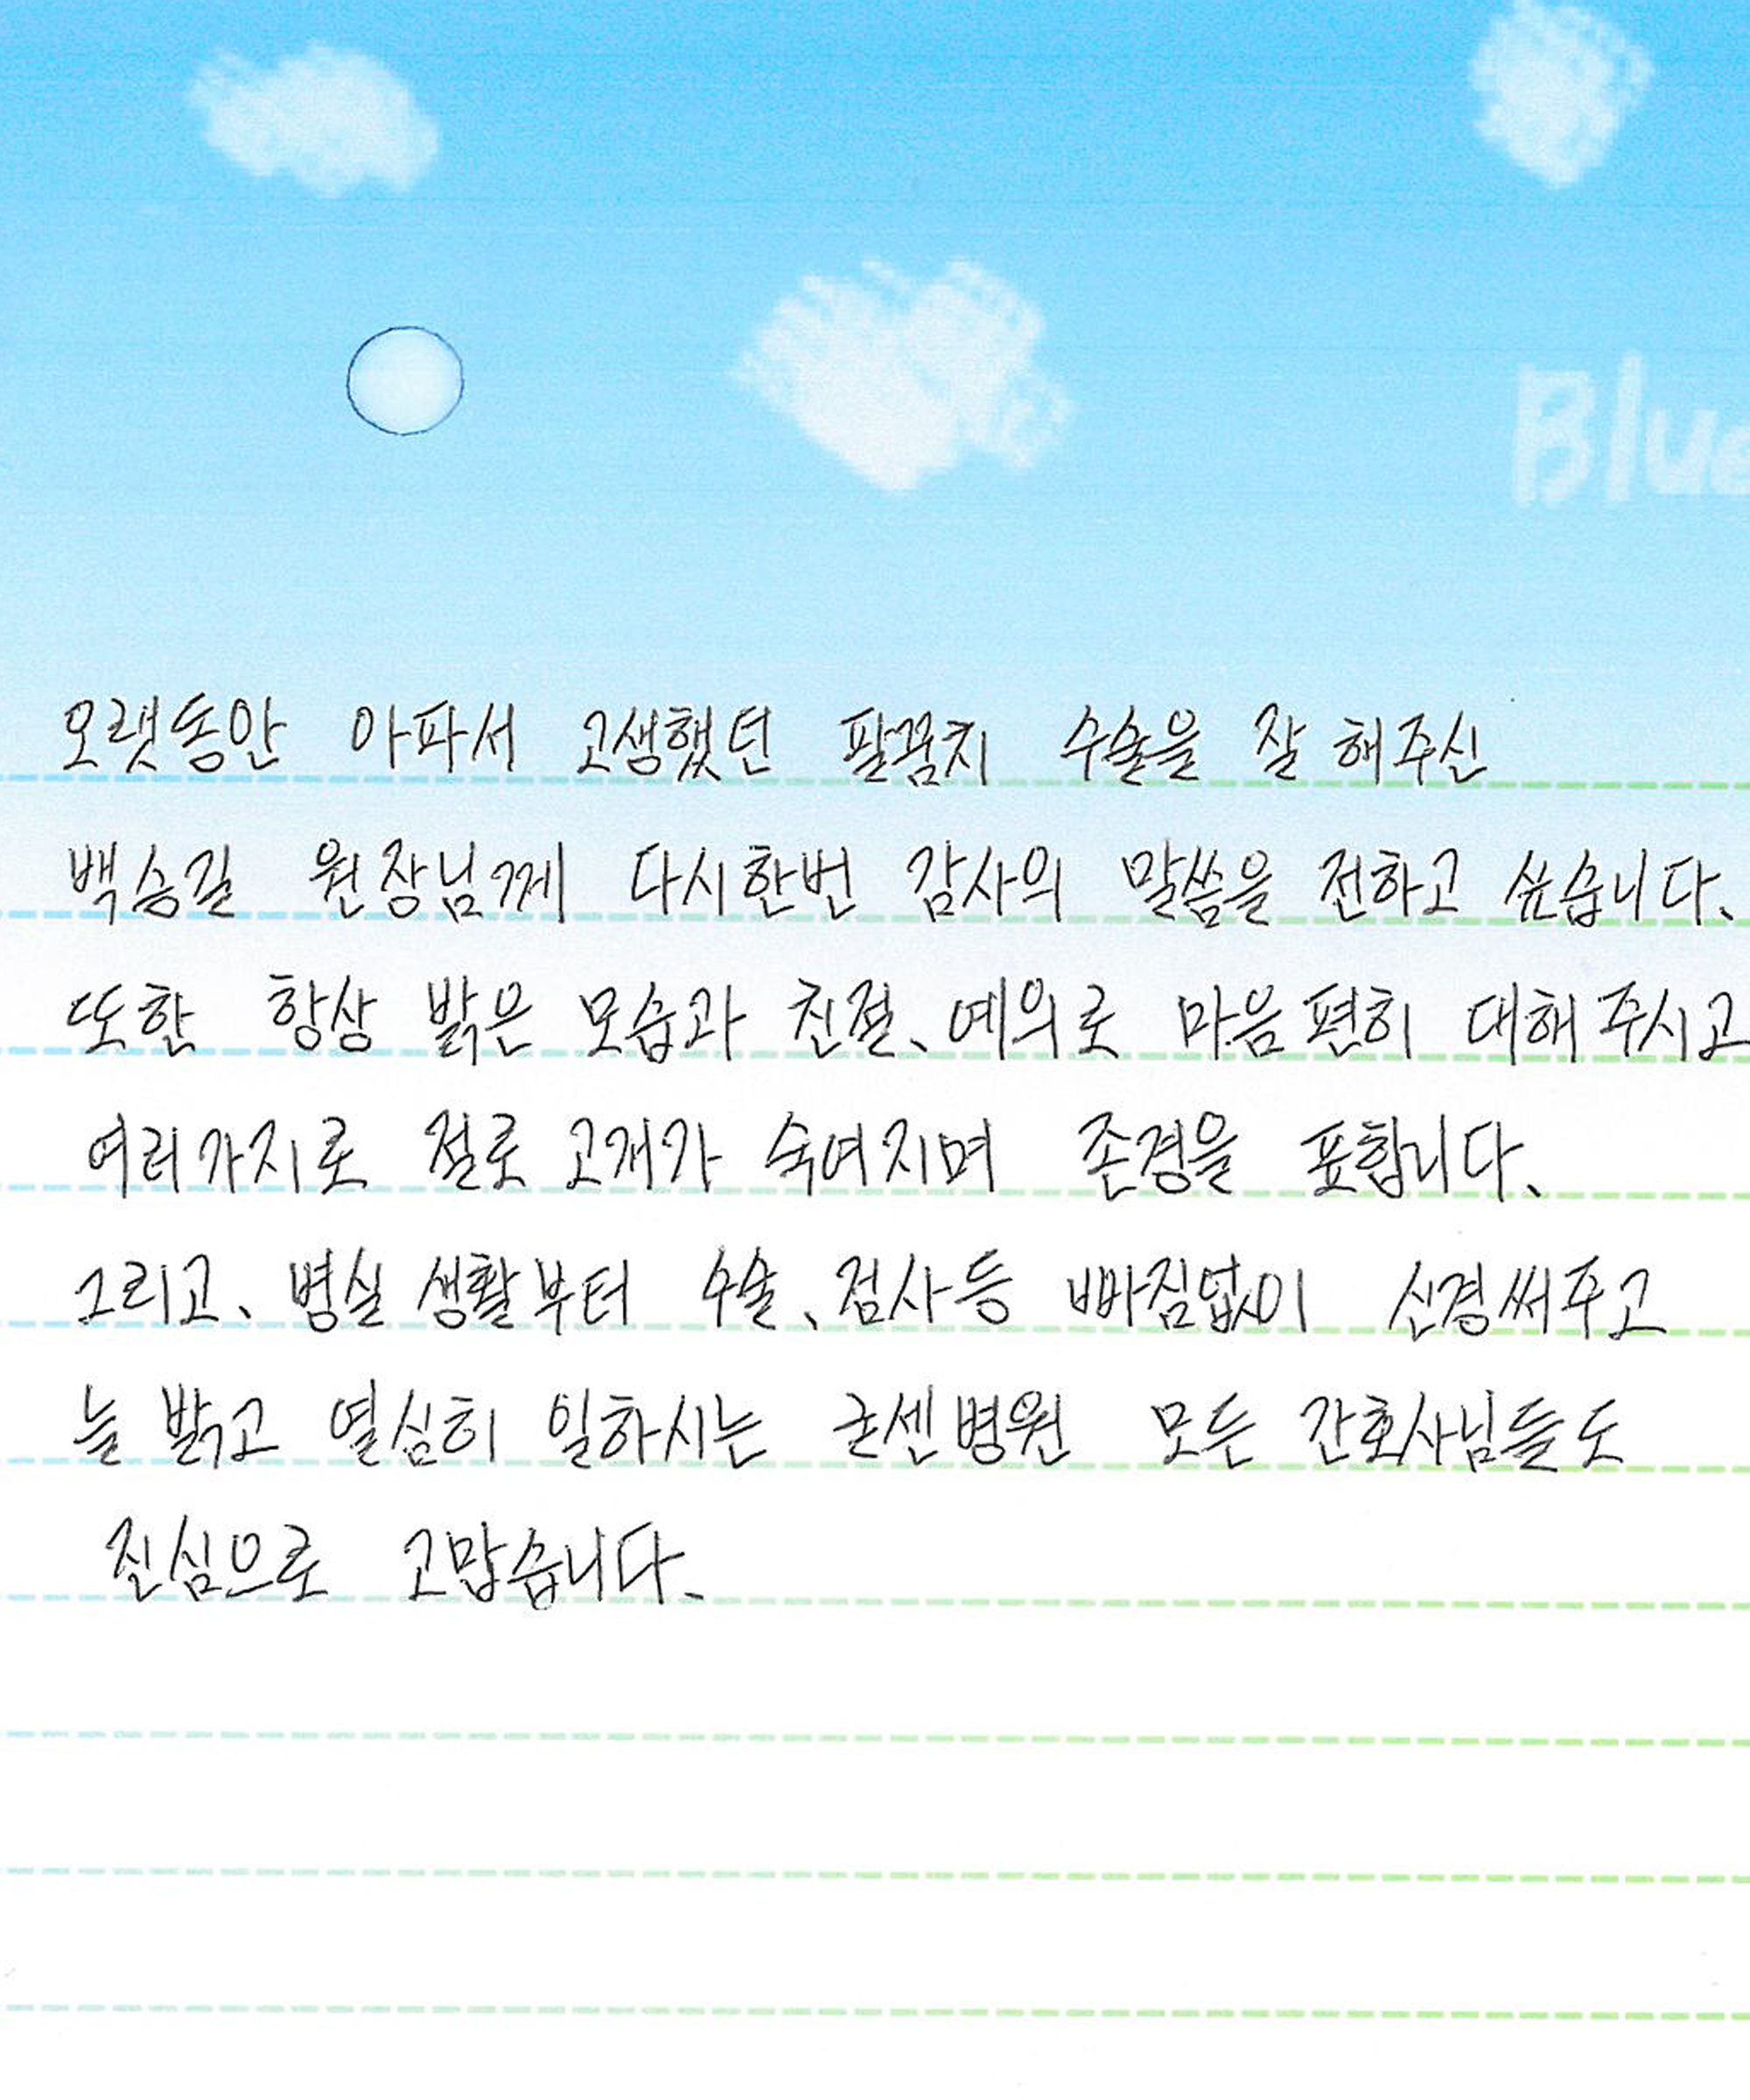 Blue
오랫동안 아파서 고생했던 팔꿈치 수술을 잘 해주신
백승길 원장님께 다시한번 감사의 말씀을 전하고 싶습니다.
또한 항상 밝은 모습과 친절, 예의로 마음 편히 대해 주시고
여러가지로 절로 고개가 숙여지며 존경을 표합니다.
그리고, 병실 생활부터 수술, 검사등 빠짐없이 신경써주고
늘 밝고 열심히 일하시는 굳센병원 모든 간호사님들도
진심으로 고맙습니다.